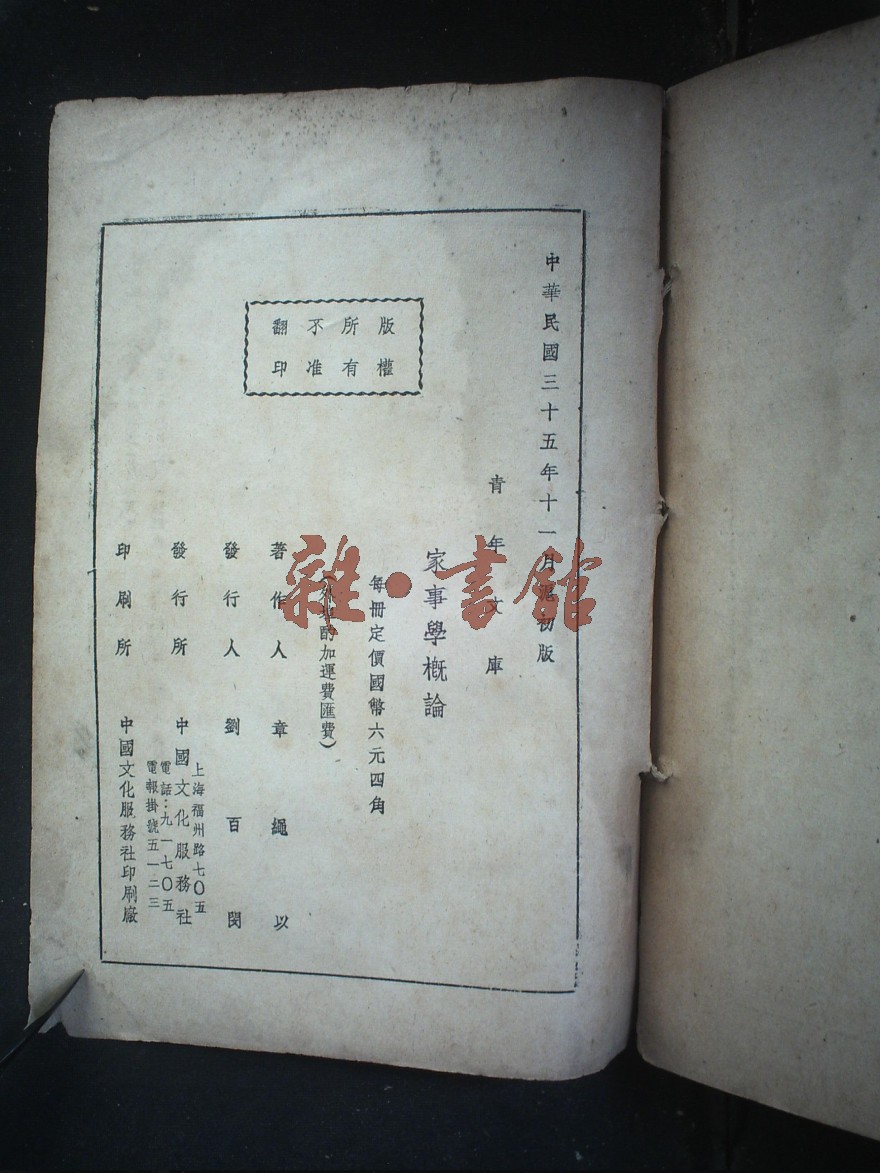 中華民國三十五年十一月滬初版
青年文庫
家事學概論
每冊定價國幣六元四角
(外埠酌加運費匯費)
著作人 章繩以
發行人 劉百閔
發行所 中國文化服務社
上海福州路七〇五
電話:九一七〇五
電報掛號五一二三
印刷所 中國文化服務社印刷廠
版權
所有
不准
翻印
雜·書館